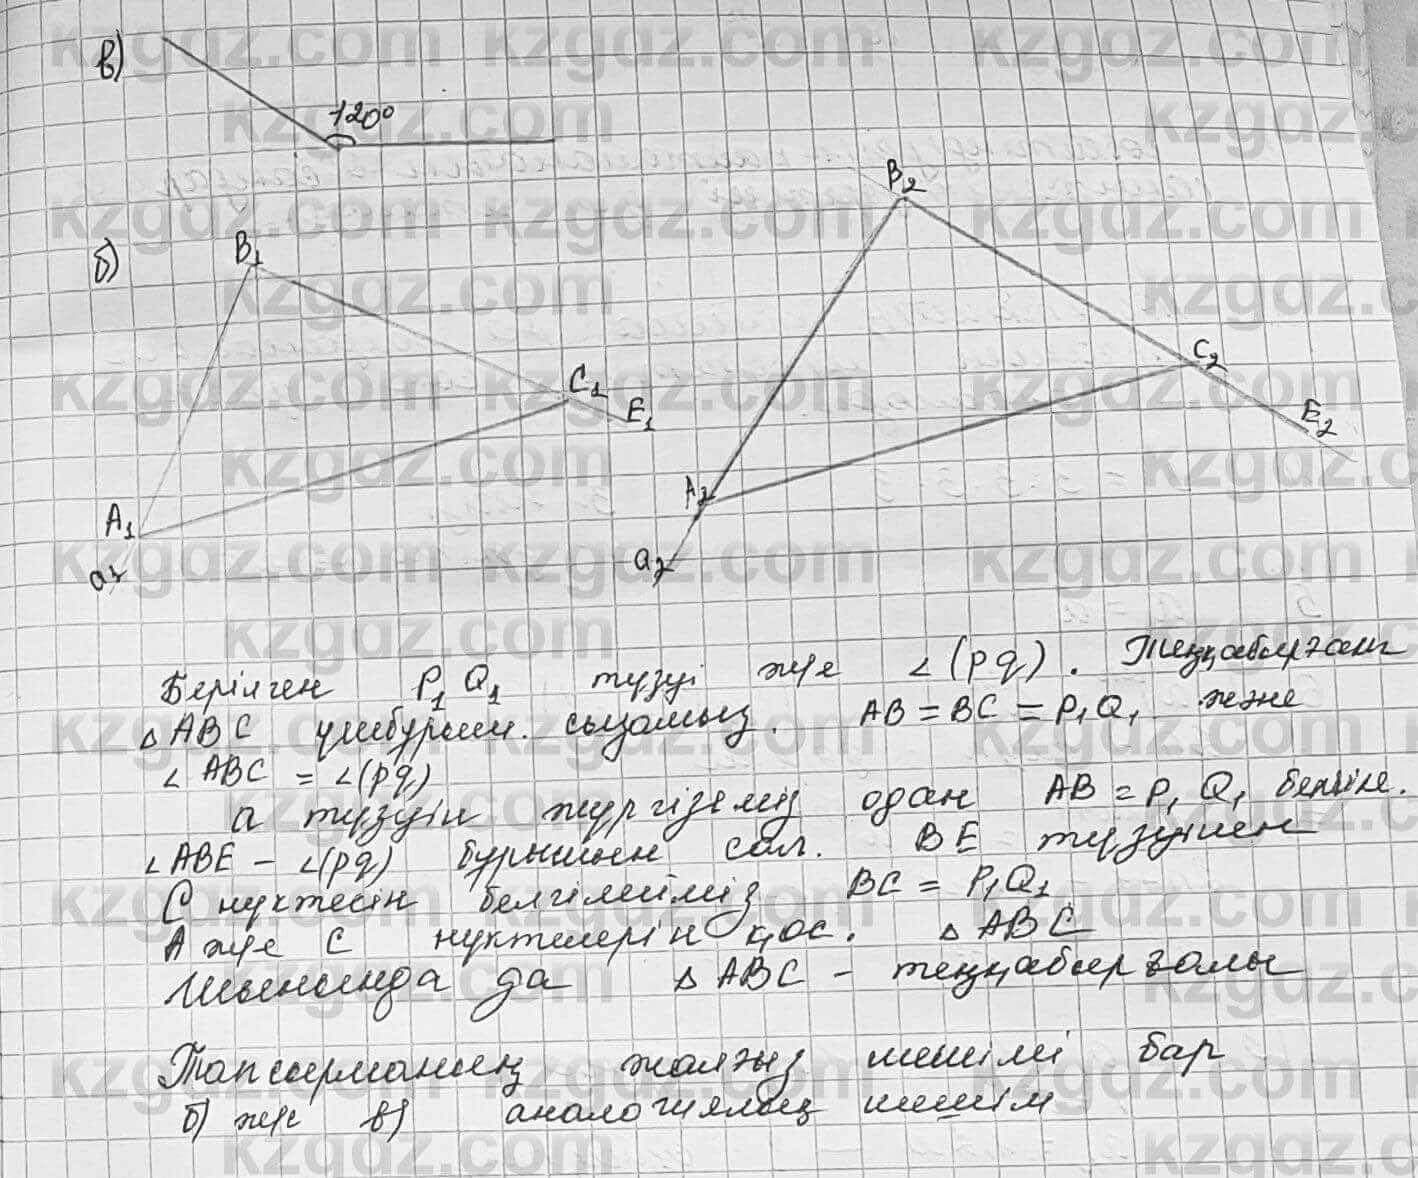 в)
120°
б)
B₁
C₁
E₁
A₁
a₁
B₂
C₂
E₂
A₂
a₂
Берілген P₁Q₁ түзуі және ∠(pq). Теңқабырғалы
△ABC үшбұрыш. сызамыз. AB = BC = P₁Q₁ және
∠ABC = ∠(pq)
a түзуін жүргіземіз одан AB = P₁Q₁ белгіле.
∠ABE – ∠(pq) бұрышын сал. BE түзуінен
C нүктесін белгілейміз BC = P₁Q₁
A және C нүктелерін қос. △ABC
Шынында да △ABC – теңқабырғалы
Тапсырманың жалғыз шешімі бар
б) және в) аналогиялық шешім
kzgdz.com